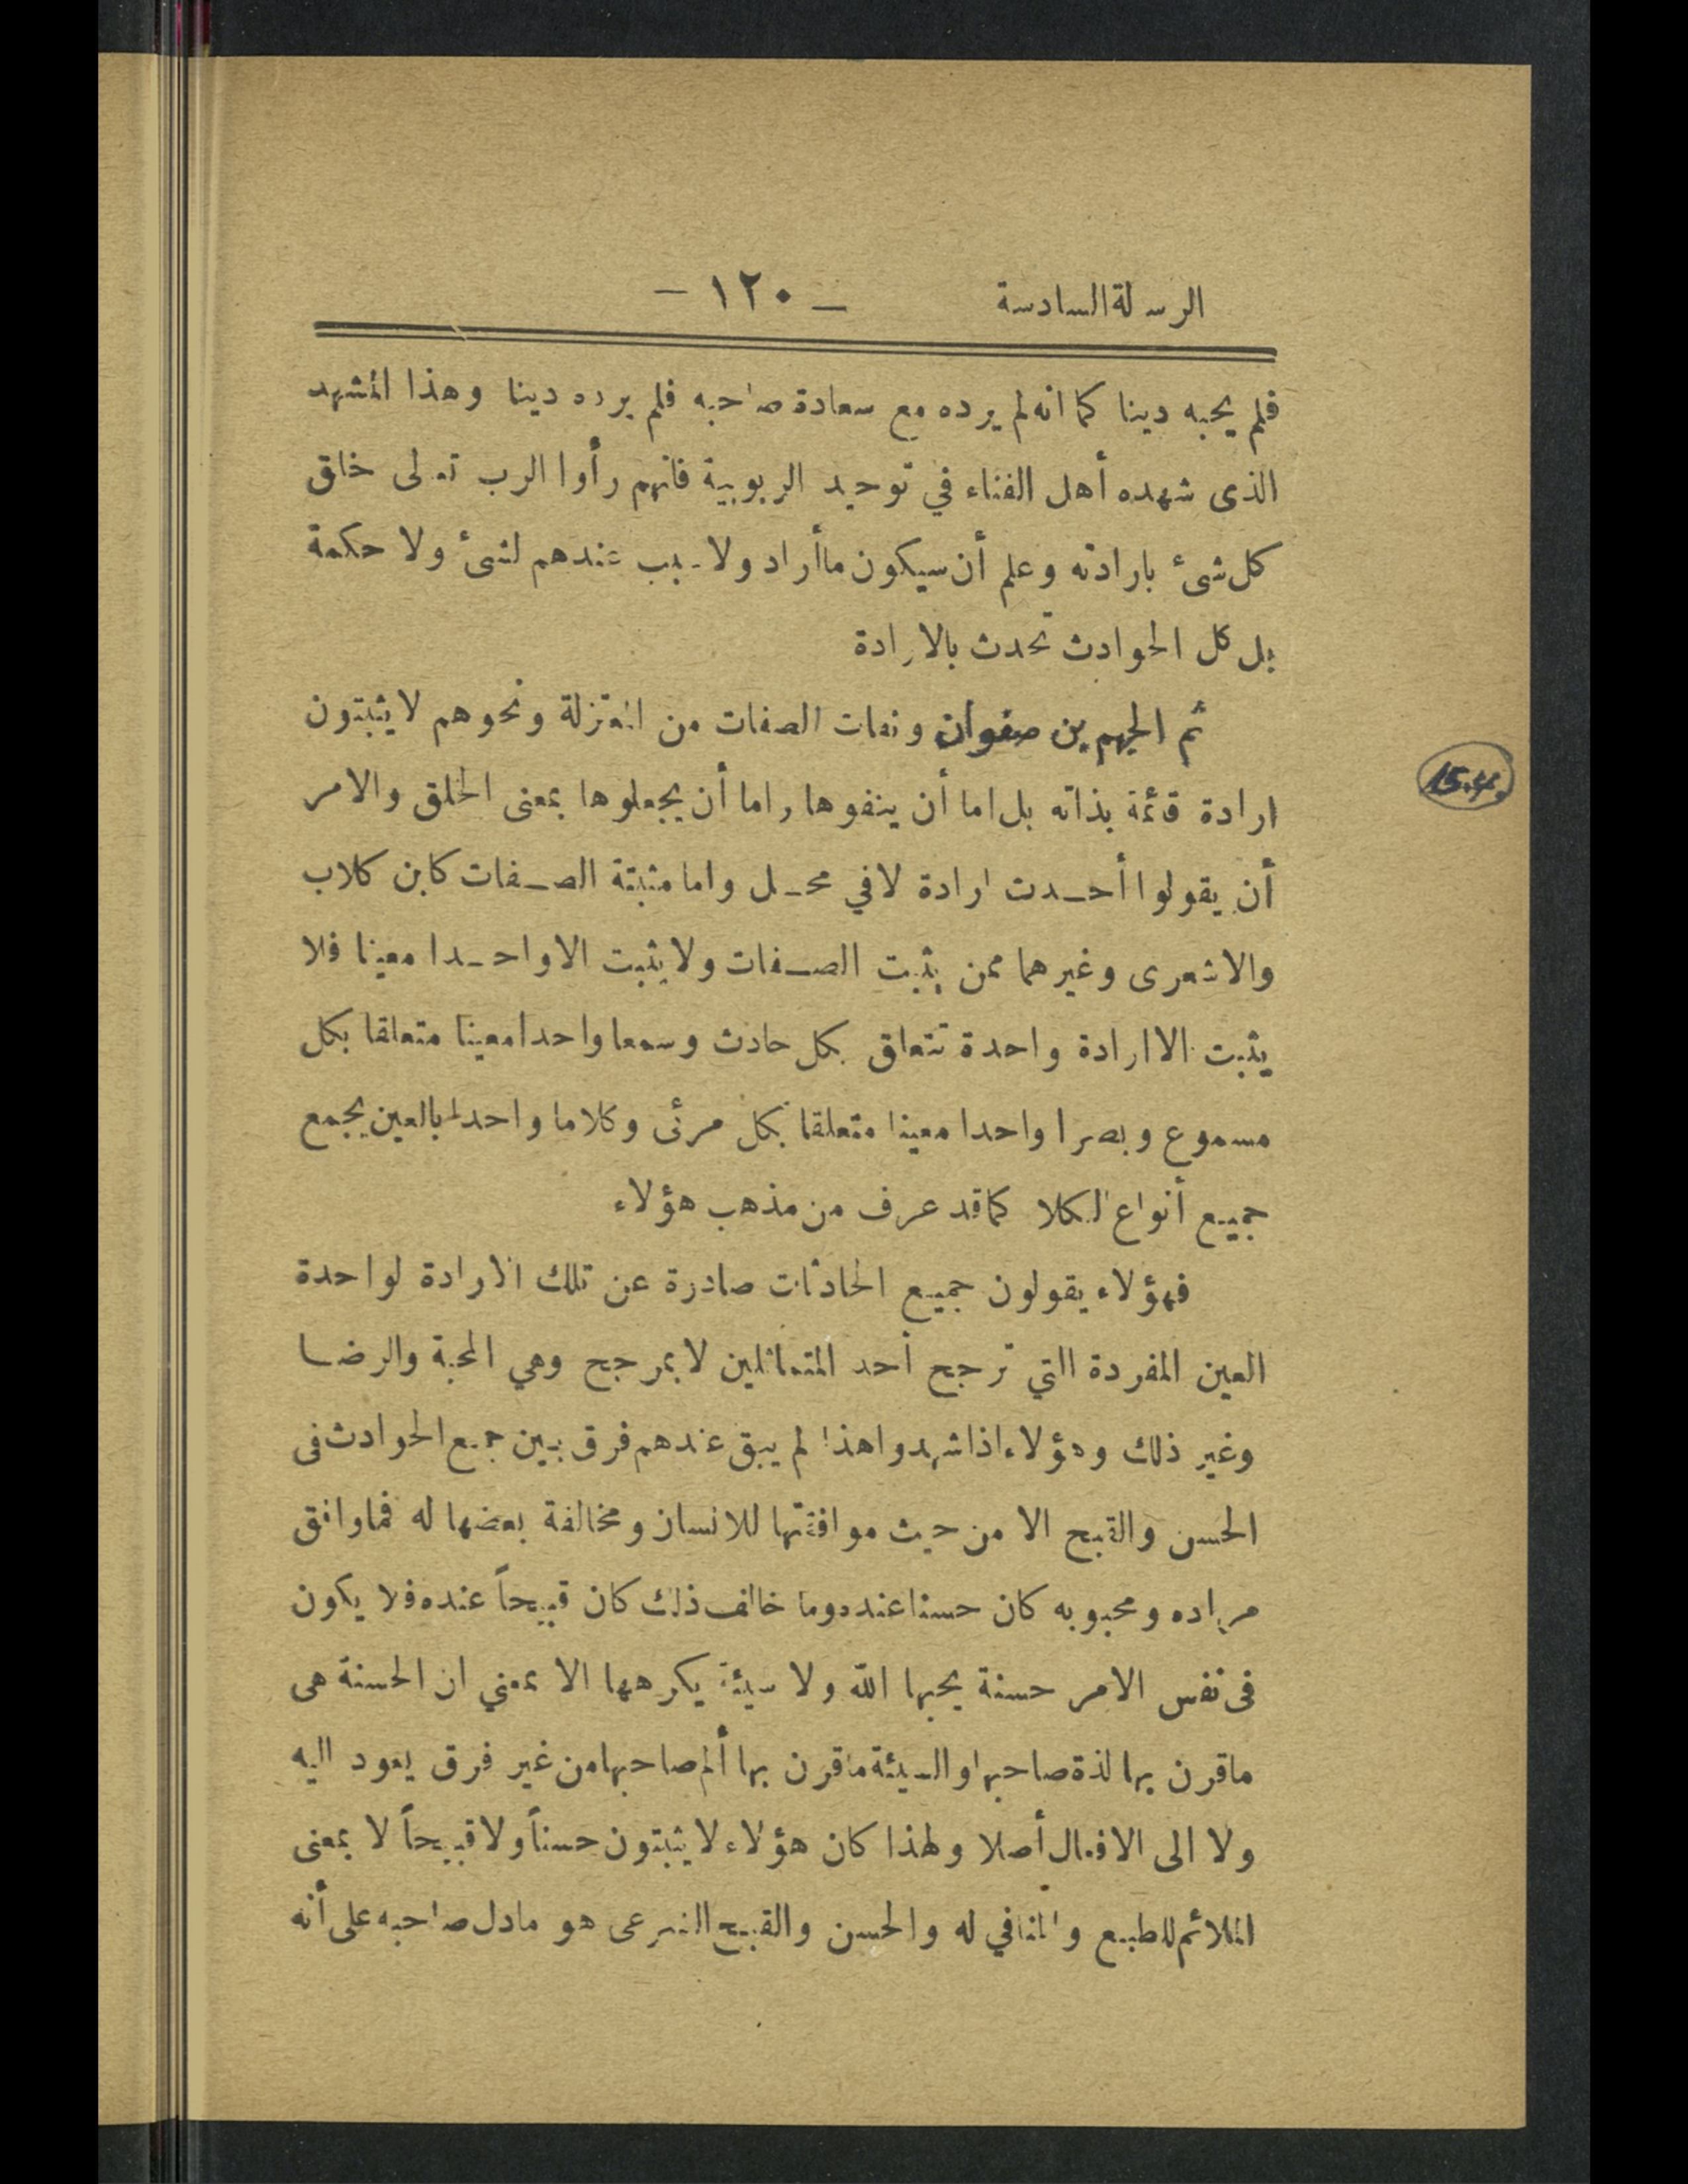 الرسلة السادسة
— ١٢٠ —
فلم يحبه دينا كما انه لم يرده مع سعادة صاحبه فلم يرده دينا وهذا المشهد
الذى شهده أهل الفناء في توحيد الربوبية فانهم رأوا الرب تعالى خلق
كل شئ بارادته وعلم أن سيكون ما أراد ولا سبب عندهم لشئ ولا حكمة
بل كل الحوادث تحدث بالارادة
ثم الجهم بن صفوان ونفات الصفات من المعتزلة ونحوهم لا يثبتون
ارادة قائمة بذاته بل اما أن ينفوها واما أن يجعلوها بمعنى الخلق والامر
أن يقولوا أحدث ارادة لا في محل واما مثبتة الصفات كابن كلاب
والاشعرى وغيرهما ممن يثبت الصفات ولا يثبت الا واحدا معينا فلا
يثبت الا ارادة واحدة تتعلق بكل حادث وسمعا واحدا معينا متعلقا بكل
مسموع وبصرا واحدا معينا متعلقا بكل مرئى وكلاما واحدا بالعين يجمع
جميع أنواع الكلا كما قد عرف من مذهب هؤلاء
فهؤلاء يقولون جميع الحادثات صادرة عن تلك الارادة لواحدة
العين المفردة التي ترجح أحد المتماثلين لا بمرجح وهي المحبة والرضا
وغير ذلك وهؤلاء اذا شهدوا هذا لم يبق عندهم فرق بين جميع الحوادث فى
الحسن والقبح الا من حيث موافقتها للانسان ومخالفة بعضها له فما وافق
مراده ومحبوبه كان حسنا عنده وما خالف ذلك كان قبيحاً عنده فلا يكون
فى نفس الامر حسنة يحبها الله ولا سيئة يكرهها الا بمعني ان الحسنة هى
ما قرن بها لذة صاحبها والسيئة ما قرن بها ألم صاحبها من غير فرق يعود اليه
ولا الى الافعال أصلا ولهذا كان هؤلاء لا يثبتون حسناً ولا قبيحاً لا بمعنى
الملائم للطبع والمنافي له والحسن والقبيح الشرعى هو ما دل صاحبه على أنه